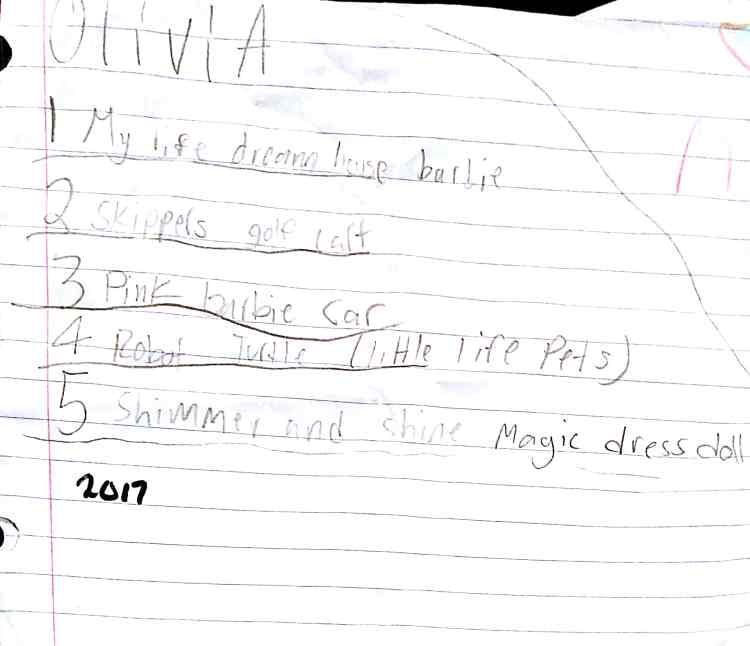 OliviA
1 My life dream house barbie
2 Skippels golf cart
3 Pink barbie car
4 Robot Turtle (little life Pets)
5 Shimmer and Shine Magic dress doll
2017